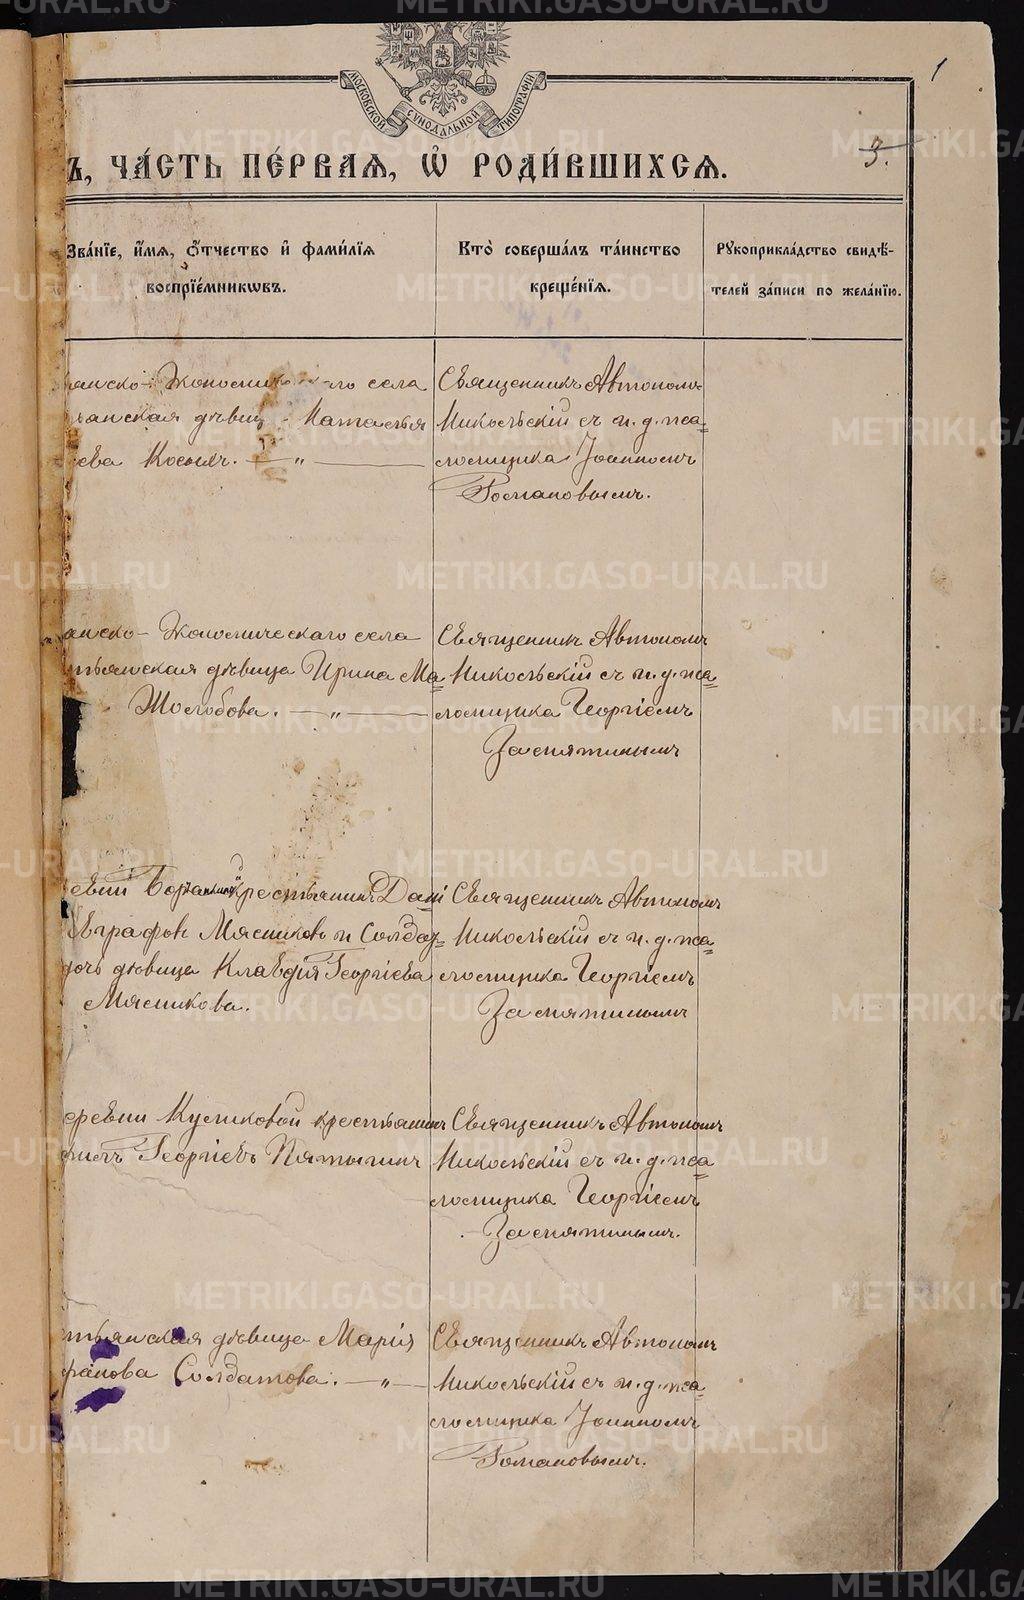 МОСКОВСКОЙ СѴНОДАЛЬНОЙ ТИПОГРАФІИ
1
3.
Ъ, ЧА́СТЬ ПЕ́РВАѦ, Ѽ РОДИ́ВШИХСѦ.
Зва́нїе, и҆́мѧ, ѻ҆́тчество и҆ фами́лїѧ
воспрїе́мникѡвъ.
Кто̀ соверша́лъ та́инство
креще́нїѧ.
Рꙋкоприкла́дство свидѣ́-
телей за́писи по жела́нїю.
анско-Экономическ го села
анская дѣвиц Наталья
ева Косыхъ. — „ —
Священникъ Автономъ
Никольскій съ и. д. пса=
ломщика Іоанномъ
Романовымъ.
анско-Экономическаго села
тьянская дѣвица Ирина Ма=
Жолобова. — „ —
Священникъ Автономъ
Никольскій съ и. д. пса=
ломщика Георгіемъ
Заспятинымъ
евни крестьянинъ Дані
Евграфовъ Мясниковъ и Солдат=
дочь дѣвица Клавдія Георгіева
Мясникова.
Священникъ Автономъ
Никольскій съ и. д. пса=
ломщика Георгіемъ
Заспятинымъ
еревни Куликовой крестьянинъ
Георгіевъ Пятыгинъ
Священникъ Автономъ
Никольскій съ и. д. пса=
ломщика Георгіемъ
Заспятинымъ.
тьянская дѣвица Марія
фанова Солдатова. — „ —
Священникъ Автономъ
Никольскій съ и. д. пса=
ломщика Іоанномъ
Романовымъ.
METRIKI.GASO-URAL.RU